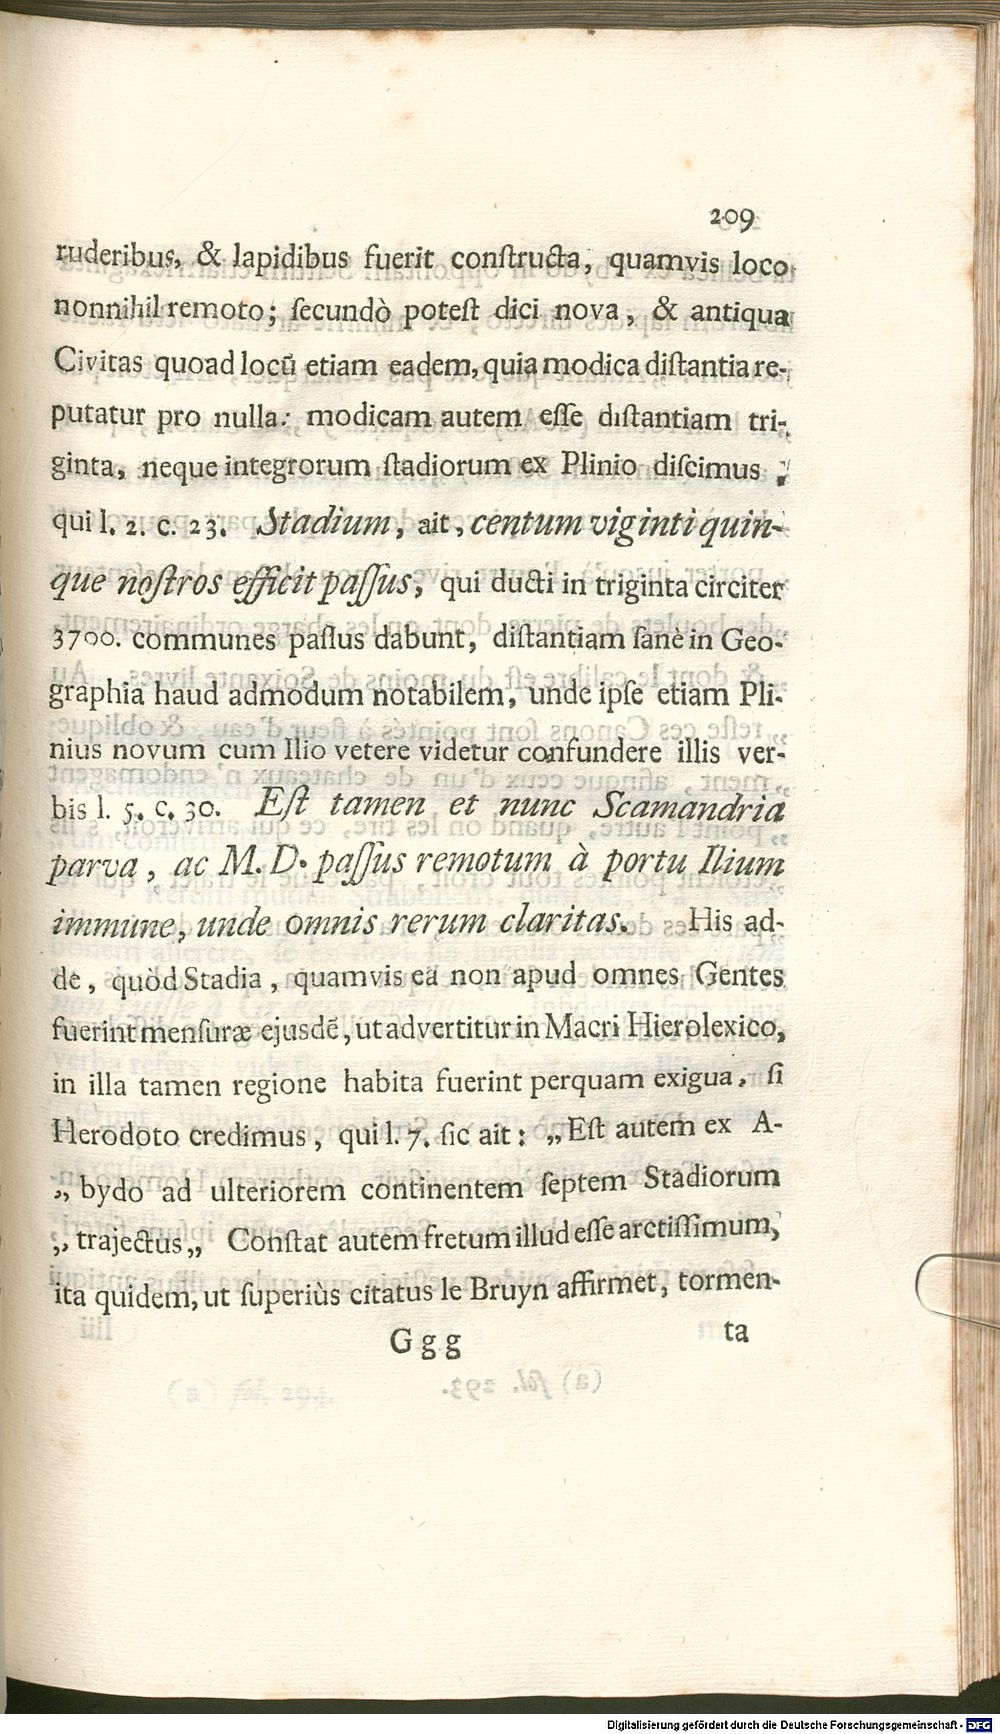 209
ruderibus, & lapidibus fuerit conſtructa, quamvis loco
nonnihil remoto; ſecundò poteſt dici nova, & antiqua
Civitas quoad locū etiam eadem, quia modica diſtantia re-
putatur pro nulla: modicam autem eſſe diſtantiam tri-
ginta, neque integrorum ſtadiorum ex Plinio diſcimus,
qui l. 2. c. 23. Stadium, ait, centum viginti quin-
que noſtros efficit paſſus, qui ducti in triginta circiter
3700. communes paſſus dabunt, diſtantiam ſanè in Geo-
graphia haud admodum notabilem, unde ipſe etiam Pli-
nius novum cum Ilio vetere videtur confundere illis ver-
bis l. 5. c. 30. Eſt tamen et nunc Scamandria
parva, ac M. D. paſſus remotum à portu Ilium
immune, unde omnis rerum claritas. His ad-
de, quòd Stadia, quamvis ea non apud omnes Gentes
fuerint menſuræ ejusdē, ut advertitur in Macri Hierolexico,
in illa tamen regione habita fuerint perquam exigua, ſi
Herodoto credimus, qui l. 7. ſic ait: „Eſt autem ex A-
„ bydo ad ulteriorem continentem ſeptem Stadiorum
„ trajectus„ Conſtat autem fretum illud eſſe arctiſſimum,
ita quidem, ut ſuperiùs citatus le Bruyn affirmet, tormen-
Ggg ta
Digitalisierung gefördert durch die Deutsche Forschungsgemeinschaft - DFG